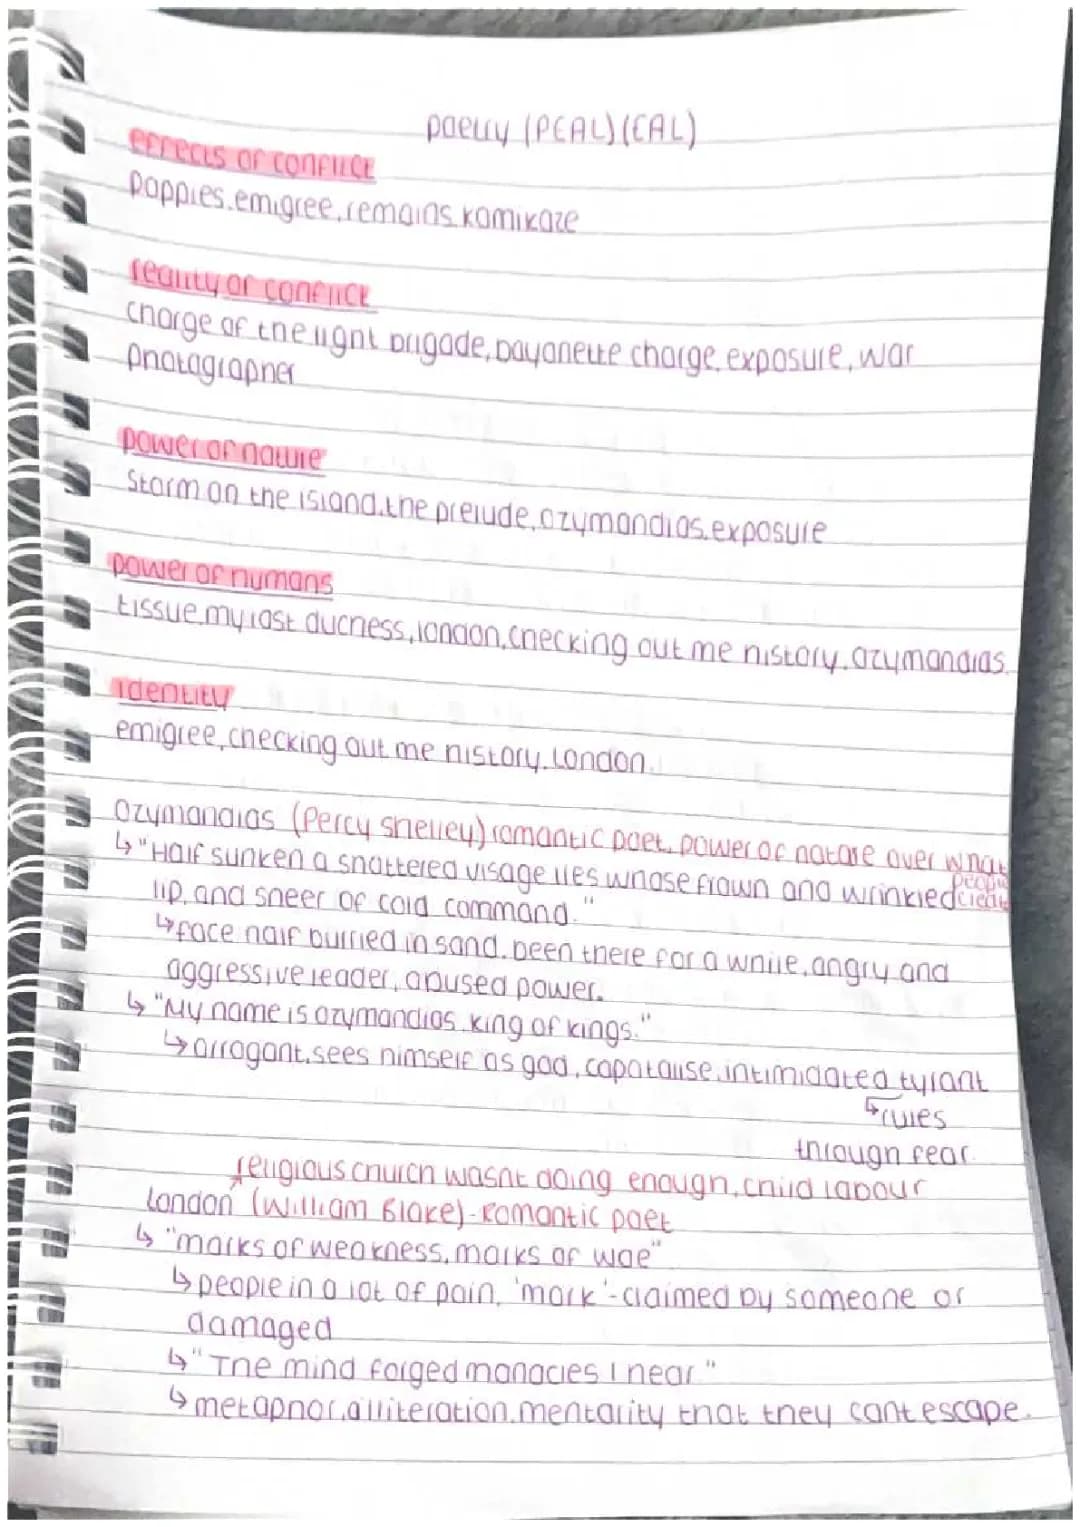 poetry (PEAL)(EAL)
effects of conflict
poppies, emigree, remains, kamikaze
reality of conflict
charge of the light brigade, bayonette charge, exposure, war
photographer
power of nature
Storm on the island, the prelude, ozymandias, exposure
power of humans
tissue, my last duchess, london, checking out me history, ozymandias.
identity
emigree, checking out me history, London.
Ozymandias (Percy shelley) romantic poet, power of nature over what
people
↳ "Half sunken a shattered visage lies whose frown and wrinkled creat
lip, and sneer of cold command."
↳ face half burried in sand, been there for a while, angry and
aggressive leader, abused power.
↳ "My name is ozymandias king of kings."
↳ arrogant, sees himself as god, capatalise, intimidated tyrant
↳ rules
through fear.
religious church wasnt doing enough, child labour
London (William Blake) - Romantic poet
↳ "marks of weakness, marks of woe"
↳ people in a lot of pain, 'mark' - claimed by someone or
damaged
↳ "The mind forged manacles I hear"
↳ metaphor, alliteration, mentarity that they cant escape.